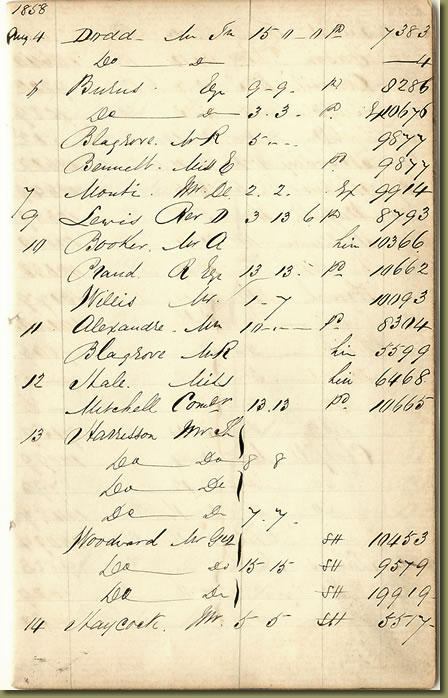 1858
Aug 4 Dodd Mr Jn 15 " " " Pd 7383
Do Do 4
6 Burns. Esq 9 - 9 - Pd 8286
Do Do 3 . 3 . P. 10676
Blagrove. Mr R 5 - - - 9877
Bennett. Miss E Pd 9877
7 Monti. Mr. De 2 . 2 . Ex 9914
9 Lewis Rev D 3 13 6 Pd 8793
10 Booker. Mr A Lin 10366
Prand R Esq 13 13 - Pd 10662
Willis Mr. 1 - 7 10093
11 Alexandre. Mr 10 - - - Pd 8304
Blagrove Mr R Lin 5599
12 Hale. Miss Lin 6468
Mitchell Comdr 13 . 13 Pd. 10665
13 Harrisson Mr
Do Do 8 8
Do Do
Do Do 7 . 7 .
Woodward Mr Geo SH 10453
Do Do 15 - 15 SH 9579
Do Do SH 19919
14 Haycock. Mr. 5 5 SH 5517